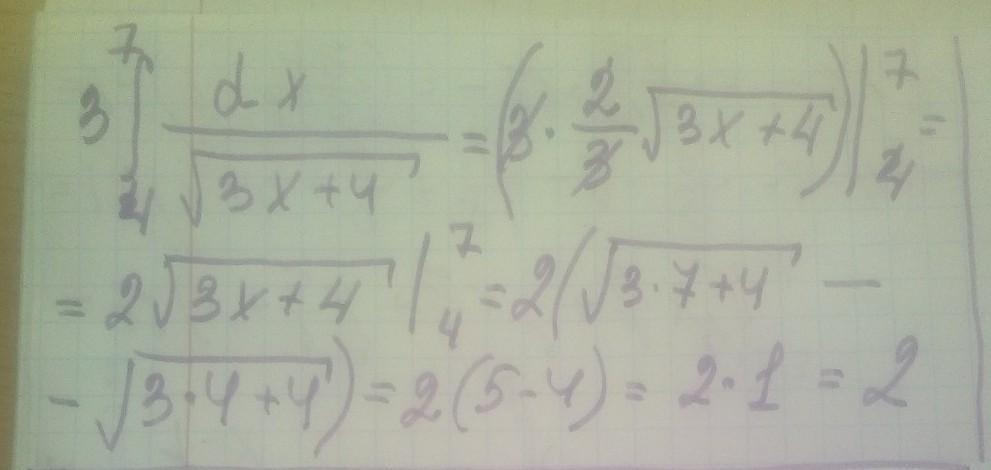 3 ∫₄⁷ dx / √(3x+4) = (3 · 2/3 √(3x+4)) |₄⁷ =
= 2√(3x+4) |₄⁷ = 2(√(3·7+4) —
- √(3·4+4)) = 2(5-4) = 2·1 = 2